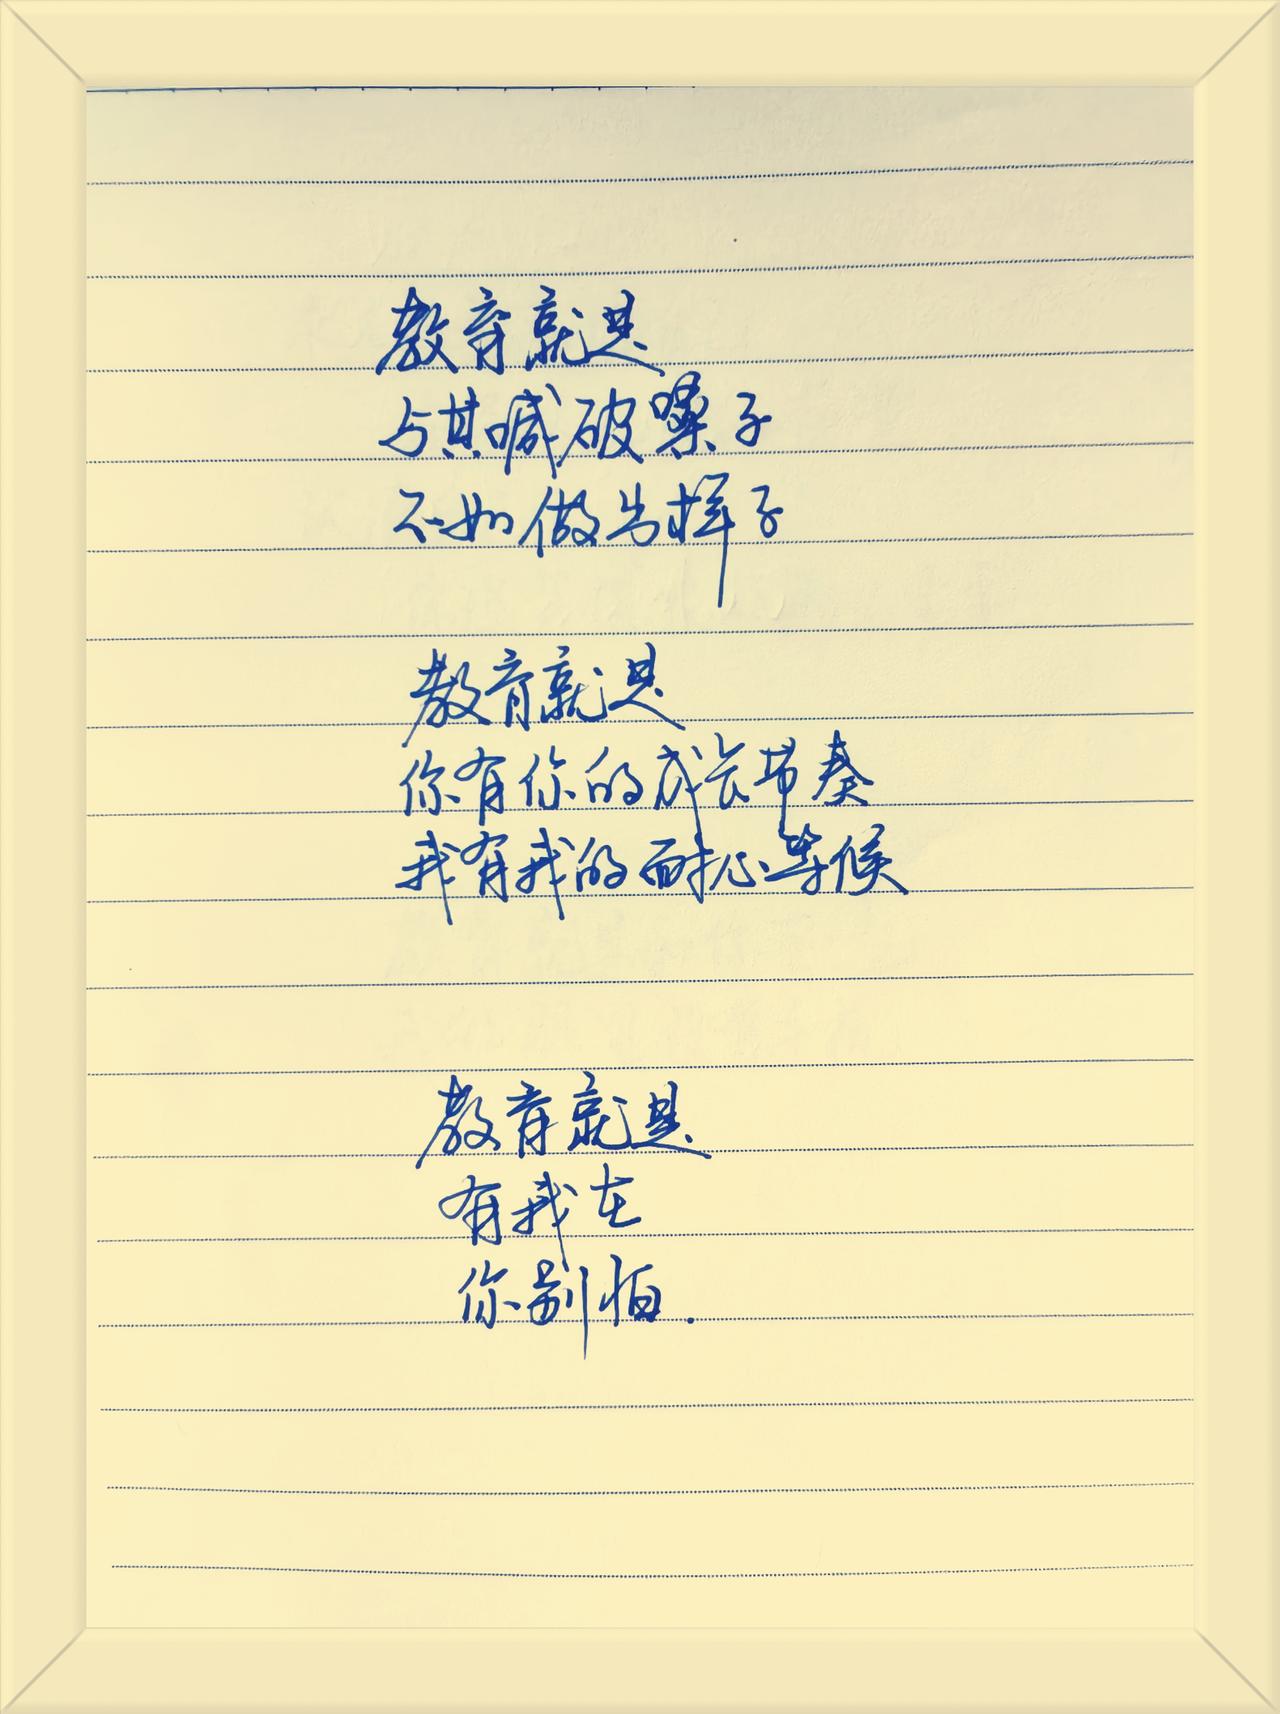 教育就是
与其喊破嗓子
不如做出样子
教育就是
你有你的成长节奏
我有我的耐心等候
教育就是
有我在
你别怕.